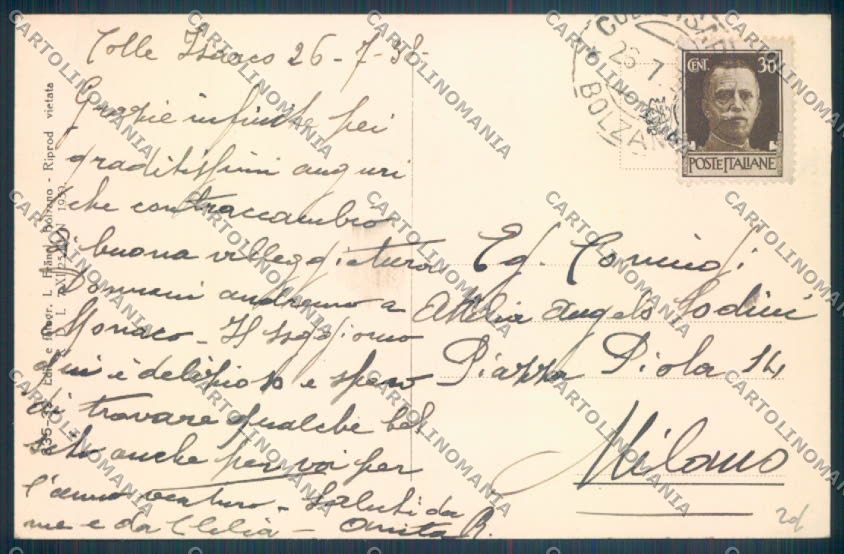 Colle Isarco 26-7-38-
Grazie infinite pei
graditissimi auguri
che contraccambio
di buona villeggiatura
Domani andremo a
Monaco - Il soggiorno
qui è delizioso e spero
di trovare qualche bel
sito anche per voi per
l'anno venturo - Saluti da
me e da Clelia - Anita R.
Eg. Coniugi
Atelia Angelo Lodini
Piazza Piola 14
Milano
CENT. 30
POSTE ITALIANE
BOLZANO
Fotogr. L. Fränzl Bolzano - Riprod vietata
CARTOLINOMANIA
2d